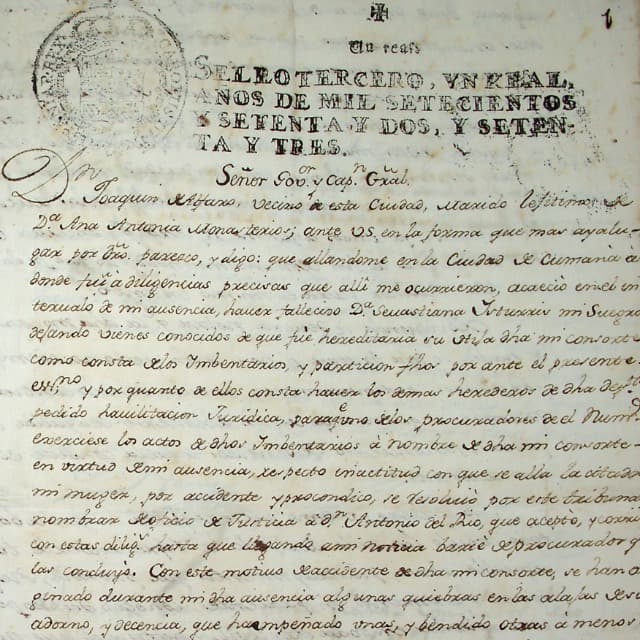 1
Un real
SELLO TERCERO, VN REAL,
AÑOS DE MIL SETECIENTOS
Y SETENTA Y DOS, Y SETEN-
TA Y TRES.
Señor Govor. y Capn. Gral.
Dn. Joaquin de Alfaro, vecino de esta Ciudad, Marido lexitimo de
Da. Ana Antonia Monasterios; ante VS. en la forma que mas aya lu-
gar por dro. paresco, y digo: que allandome en la Ciudad de Cumaná a
donde fui a diligencias precisas que alli me ocurrieron, acaeció en el in
terualo de mi ausencia, haver fallecido Da. Sevastiana mi Suegra
dejando vienes conocidos de que fue hereditaria su hija dha mi consorte
como consta de los Imbentarios, y particion fhos por ante el presente
essno. y por quanto de ellos consta haver los demas herederos de dha
pedido havilitacion Juridica, para que uno de los procuradores de el Numo.
exerciese los actos de dhos Imbentarios á nombre de dha mi consorte
en virtud de mi ausencia, respecto inactitud con que se alla la citada
mi muger, por accidente que procondico, se resolvió por este tribuna
nombrar de oficio de Justicia á dn. Antonio del Rio, que aceptó, y corrió
con estas diligs. harta que llegando a mi noticia barié de procurador y
las concluyó. Con este motivo de accidente de dha mi consorte, se han o
ginado durante mi dha ausencia algunas quiebras en las alajas de su
adorno, y decencia, que ha empeñado unas, y bendido otras á menos